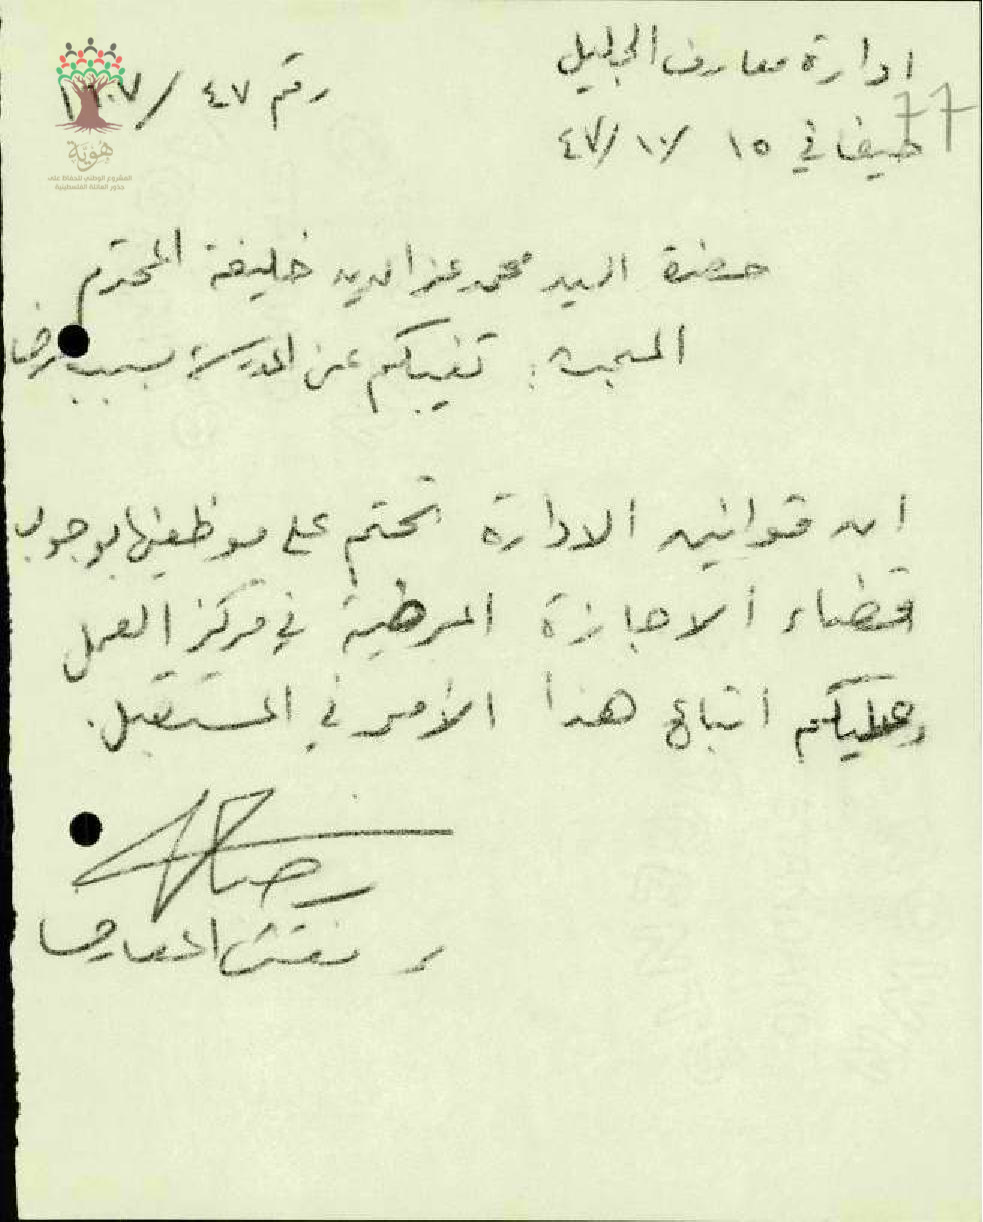 ادارة معارف الجليل
رقم ٤٧ /
77
حيفا في ١٥ /١٠/ ٤٧
هوية
المشروع الوطني للحفاظ على
جذور العائلة الفلسطينية
حضرة السيد محمد عز الدين خليفة المحترم
المبحث: تغيبكم عن المدرسة بسبب
ان قوانين الادارة تحتم على موظفيها بوجوب
قضاء الاجازة المرضية في مركز العمل
وعليكم اتباع هذا الأمر في المستقبل.
مفتش المعارف